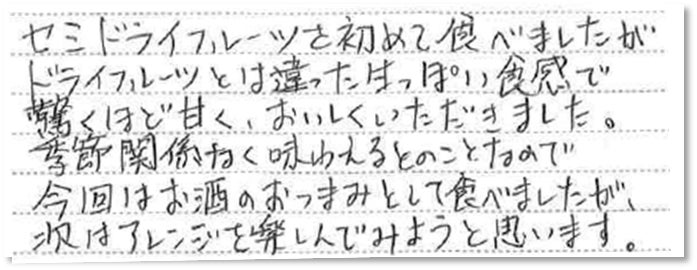 セミドライフルーツを初めて食べましたが
ドライフルーツとは違ったはっぽい食感で
驚くほど甘く、おいしくいただきました。
季節関係なく味わえるとのことなので
今回はお酒のおつまみとして食べましたが、
次はアレンジを楽しんでみようと思います。